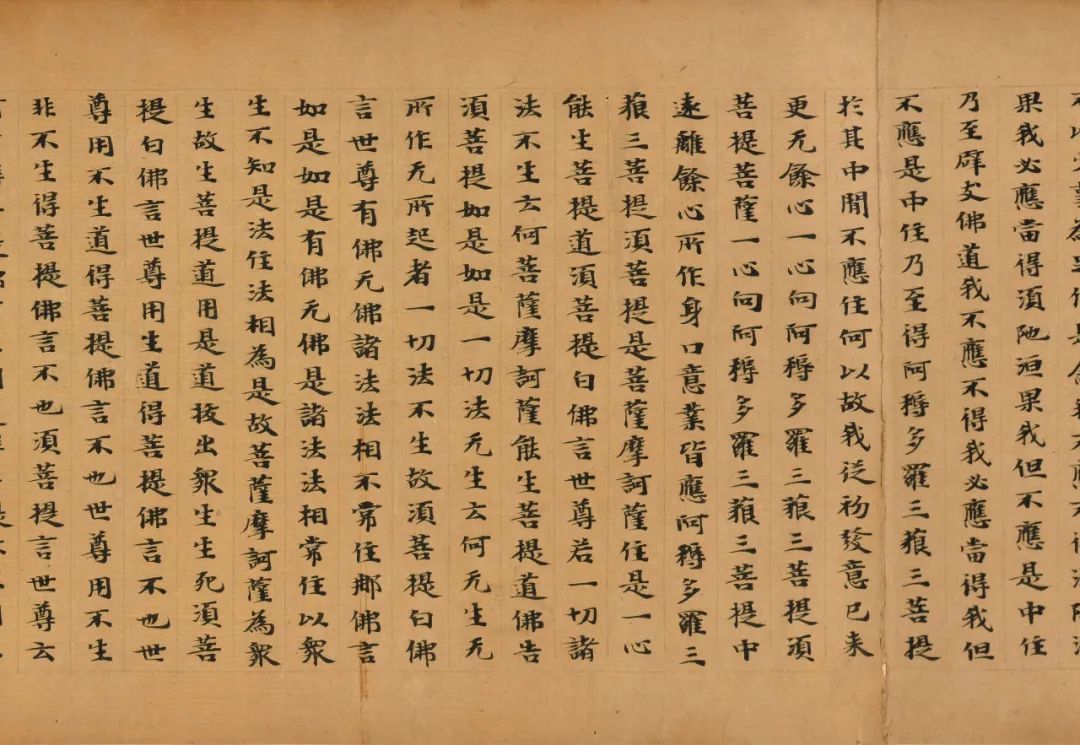 果我必應當得湏陁洹果我但不應是中住
乃至辟支佛道我不應不得我必應當得我但
不應是中住乃至得阿耨多羅三藐三菩提
於其中閒不應住何以故我從初發意已来
更无餘心一心向阿耨多羅三藐三菩提湏
菩提菩薩一心向阿耨多羅三藐三菩提中
遠離餘心所作身口意業皆應阿耨多羅三
藐三菩提湏菩提是菩薩摩訶薩住是一心
能生菩提道湏菩提白佛言世尊若一切諸
法不生云何菩薩摩訶薩能生菩提道佛告
湏菩提如是如是一切法无生云何无生无
所作无所起者一切法不生故湏菩提白佛
言世尊有佛无佛諸法法相不常住耶佛言
如是如是有佛无佛是諸法法相常住以衆
生不知是法住法相為是故菩薩摩訶薩為衆
生故生菩提道用是道拔出衆生生死湏菩
提白佛言世尊用生道得菩提佛言不也世
尊用不生道得菩提佛言不也世尊用不生
非不生得菩提佛言不也湏菩提言世尊云